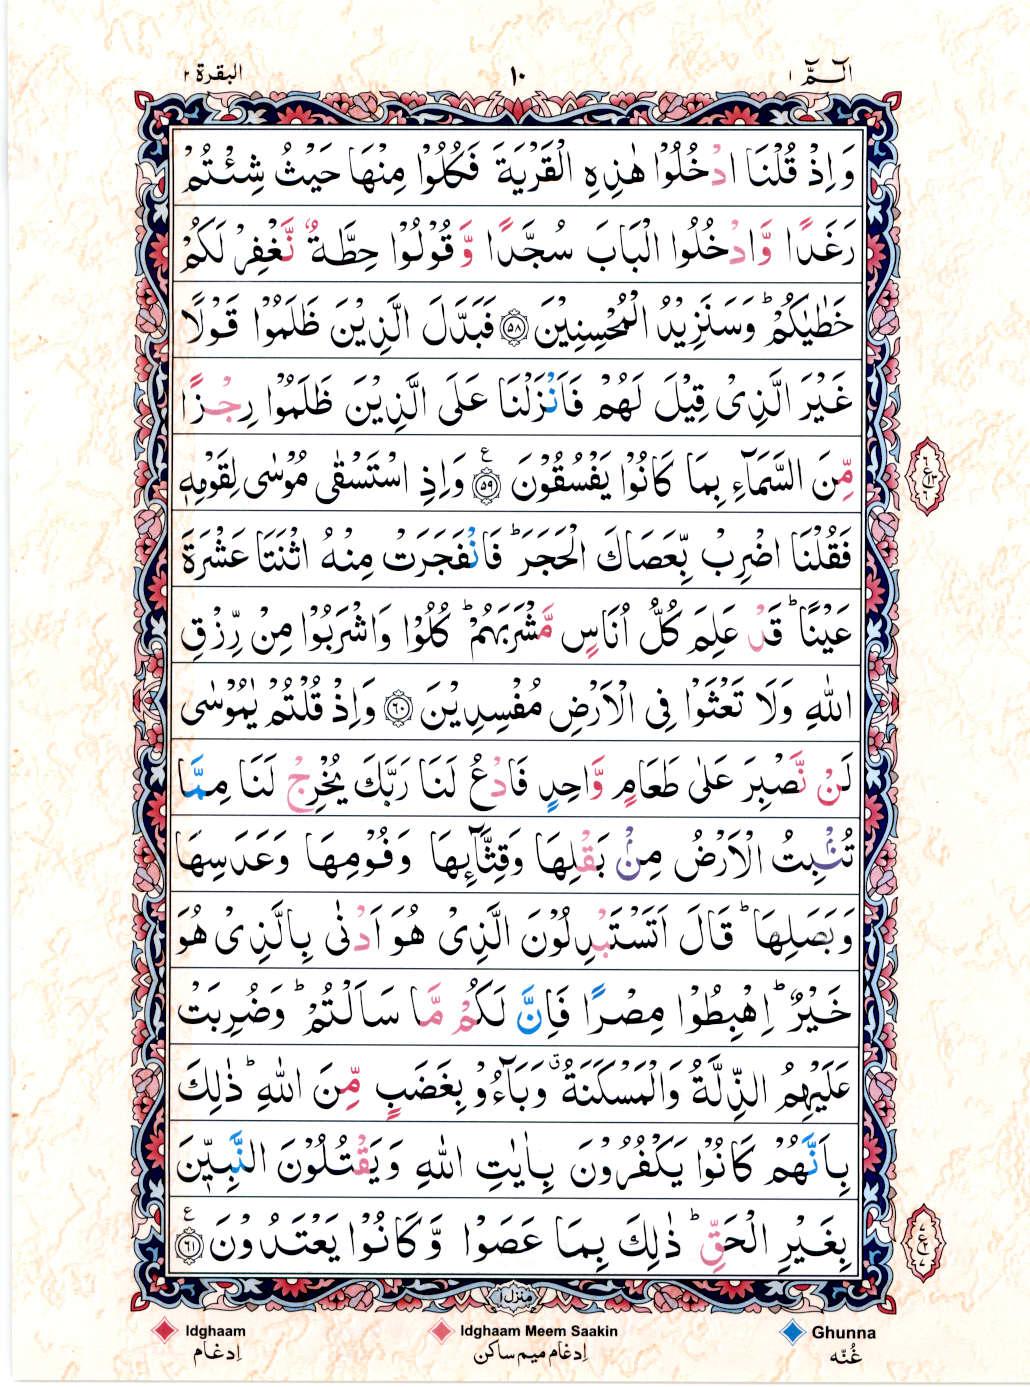 الٓمّٓ ١ ١٠ البقرة ٢
وَاِذْ قُلْنَا ادْخُلُوْا هٰذِهِ الْقَرْيَةَ فَكُلُوْا مِنْهَا حَيْثُ شِئْتُمْ
رَغَدًا وَّادْخُلُوا الْبَابَ سُجَّدًا وَّقُوْلُوْا حِطَّةٌ نَّغْفِرْ لَكُمْ
خَطٰيٰكُمْ ؕ وَسَنَزِيْدُ الْمُحْسِنِيْنَ ۝٥٨ فَبَدَّلَ الَّذِيْنَ ظَلَمُوْا قَوْلًا
غَيْرَ الَّذِىْ قِيْلَ لَهُمْ فَاَنْزَلْنَا عَلَى الَّذِيْنَ ظَلَمُوْا رِجْزًا
مِّنَ السَّمَآءِ بِمَا كَانُوْا يَفْسُقُوْنَ ۝٥٩ ع وَاِذِ اسْتَسْقٰى مُوْسٰى لِقَوْمِهٖ
فَقُلْنَا اضْرِبْ بِّعَصَاكَ الْحَجَرَ ؕ فَانْفَجَرَتْ مِنْهُ اثْنَتَا عَشْرَةَ
عَيْنًا ؕ قَدْ عَلِمَ كُلُّ اُنَاسٍ مَّشْرَبَهُمْ ؕ كُلُوْا وَاشْرَبُوْا مِنْ رِّزْقِ
اللّٰهِ وَلَا تَعْثَوْا فِى الْاَرْضِ مُفْسِدِيْنَ ۝٦٠ وَاِذْ قُلْتُمْ يٰمُوْسٰى
لَنْ نَّصْبِرَ عَلٰى طَعَامٍ وَّاحِدٍ فَادْعُ لَنَا رَبَّكَ يُخْرِجْ لَنَا مِمَّا
تُنْۢبِتُ الْاَرْضُ مِنْۢ بَقْلِهَا وَقِثَّآئِهَا وَفُوْمِهَا وَعَدَسِهَا
وَبَصَلِهَا ؕ قَالَ اَتَسْتَبْدِلُوْنَ الَّذِىْ هُوَ اَدْنٰى بِالَّذِىْ هُوَ
خَيْرٌ ؕ اِهْبِطُوْا مِصْرًا فَاِنَّ لَكُمْ مَّا سَاَلْتُمْ ؕ وَضُرِبَتْ
عَلَيْهِمُ الذِّلَّةُ وَالْمَسْكَنَةُ ۗ وَبَآءُوْ بِغَضَبٍ مِّنَ اللّٰهِ ؕ ذٰلِكَ
بِاَنَّهُمْ كَانُوْا يَكْفُرُوْنَ بِاٰيٰتِ اللّٰهِ وَيَقْتُلُوْنَ النَّبِيّٖنَ
بِغَيْرِ الْحَقِّ ؕ ذٰلِكَ بِمَا عَصَوْا وَّكَانُوْا يَعْتَدُوْنَ ۝٦١ ع
منزل ١
Idghaam Idghaam Meem Saakin Ghunna
اِدغام اِدغام میم ساکن غُنّه